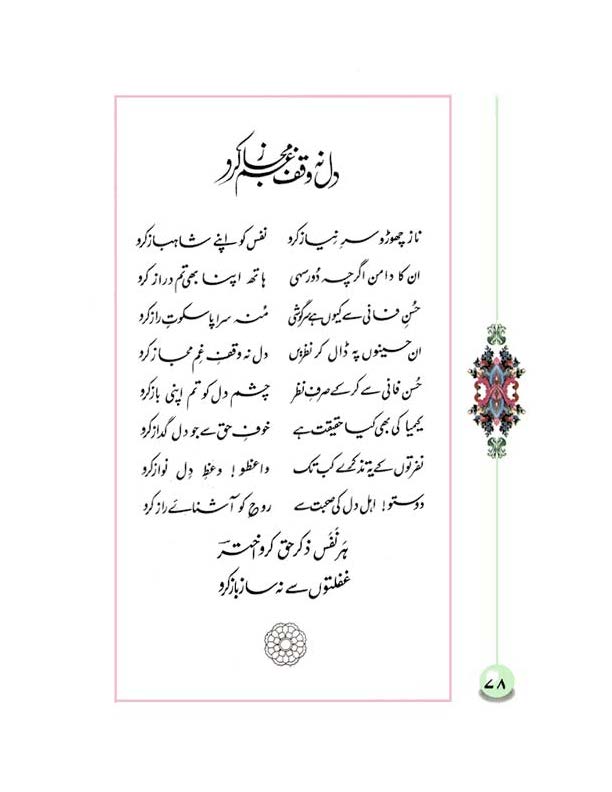 دل نہ وقف غم مجاز کرو
ناز چھوڑو سرِ نیاز کرو نفس کو اپنے شاہباز کرو
ان کا دامن اگرچہ دُور سہی ہاتھ اپنا بھی تم دراز کرو
حُسنِ فانی سے کیوں ہے سرگوشی مُنہ سراپا سکوتِ راز کرو
ان حسینوں پہ ڈال کر نظریں دل نہ وقفِ غمِ مجاز کرو
حُسن فانی سے کرکے صرفِ نظر چشم دل کو تم اپنی باز کرو
کیمیا کی بھی کیا حقیقت ہے خوفِ حق سے جو دل گداز کرو
نفرتوں کے یہ تذکرے کب تک واعظو! وعظِ دِل نواز کرو
دوستو! اہل دل کی صحبت سے روح کو آشنائے راز کرو
ہر نَفَس ذکر حق کرو اختر
غفلتوں سے نہ ساز باز کرو
۷۸